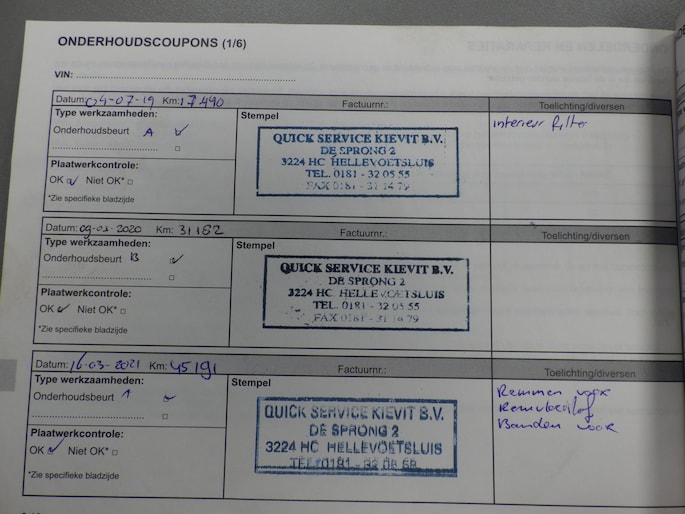 ONDERHOUDSCOUPONS (1/6)
VIN:
Datum: 04-07-19 Km: 17.490 Factuurnr.: Toelichting/diversen
Type werkzaamheden: Stempel interieur filter
Onderhoudsbeurt A
QUICK SERVICE KIEVIT B.V.
DE SPRONG 2
3224 HC HELLEVOETSLUIS
TEL. 0181 - 32 05 55
FAX 0181 - 31 14 79
Plaatwerkcontrole:
OK Niet OK*
*Zie specifieke bladzijde
Datum: 09-03-2020 Km: 31182 Factuurnr.: Toelichting/diversen
Type werkzaamheden: Stempel
Onderhoudsbeurt B
QUICK SERVICE KIEVIT B.V.
DE SPRONG 2
3224 HC HELLEVOETSLUIS
TEL. 0181 - 32 05 55
FAX 0181 - 31 14 79
Plaatwerkcontrole:
OK Niet OK*
*Zie specifieke bladzijde
Datum: 16-03-2021 Km: 45191 Factuurnr.: Toelichting/diversen
Type werkzaamheden: Stempel Remmen voor
Onderhoudsbeurt A Remvloeistof
Banden voor
QUICK SERVICE KIEVIT B.V.
DE SPRONG 2
3224 HC HELLEVOETSLUIS
TEL. 0181 - 32 05 55
Plaatwerkcontrole:
OK Niet OK*
*Zie specifieke bladzijde